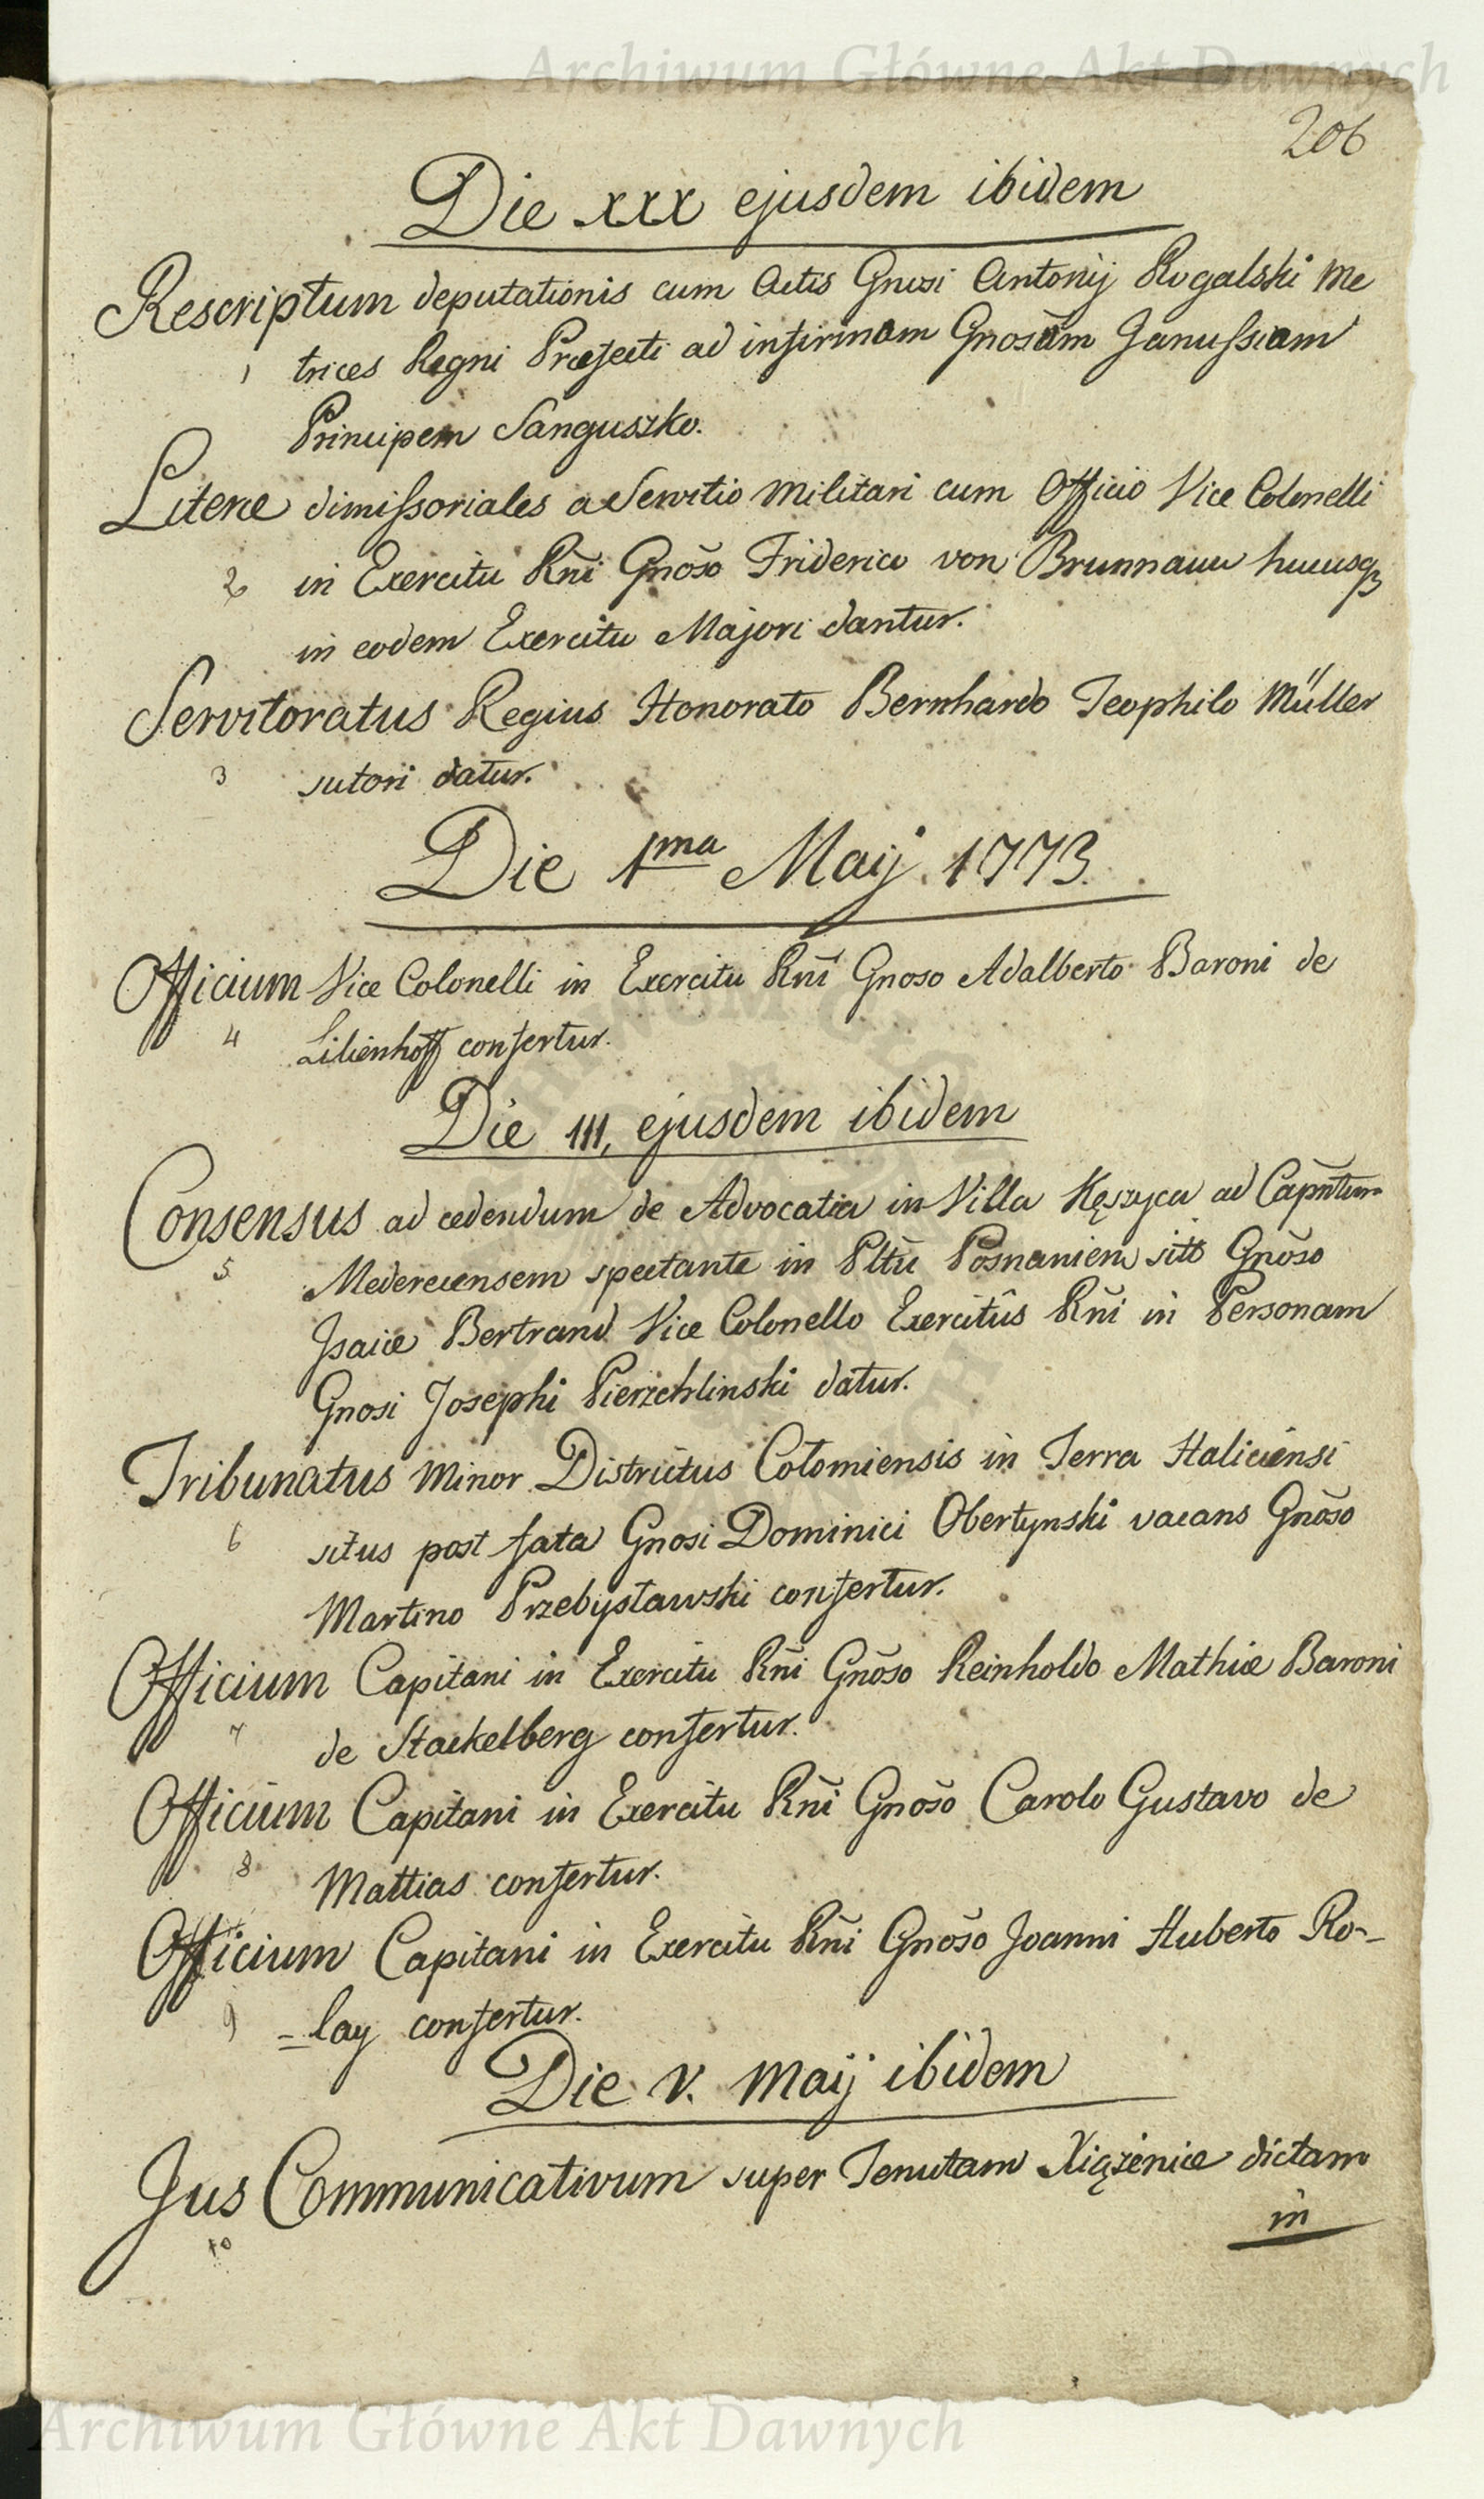 Archiwum Główne Akt Dawnych
206
Die xxx ejusdem ibidem
Rescriptum deputationis cum Actis Gnosi Antonij Rogalski Me
1 trices Regni Præfecti ad infirmam Gnosam Janussiam
Principem Sanguszko.
Literæ dimissoriales a Servitio Militari cum Officio Vice Colonelli
2 in Exercitu Rñi Gnõso Friderico von Brunnauu hucusqz
in eodem Exercitu Majori dantur.
Servitoratus Regius Honorato Bernhardo Teophilo Müller
3 sutori datur.
Die 1ma Maij 1773.
Officium Vice Colonelli in Exercitu Rñi Gnoso Adalberto Baroni de
4 Lilienhoff confertur.
Die III, ejusdem ibidem
Consensus ad cedendum de Advocatia in Villa Kęszyca ad Capñtum
5 Mederecensem spectante in Pltũ Posnanien sitt Gnõso
Isaiæ Bertrand Vice Colonello Exercitûs Rñi in Personam
Gnosi Josephi Pierzchlinski datur.
Tribunatus Minor Districtus Colomiensis in Terra Haliciensi
6 situs post fata Gnosi Dominici Obertynski vacans Gnõso
Martino Przebysławski confertur.
Officium Capitani in Exercitu Rñi Gnõso Reinholdo Mathiæ Baroni
7 de Stackelberg confertur.
Officium Capitani in Exercitu Rñi Gnõso Carolo Gustavo de
8 Mattias confertur.
Officium Capitani in Exercitu Rñi Gnõso Joanni Huberto Ro-
9 =lay confertur.
Die V. Maij ibidem
Jus Communicativum super Tenutam Xiążenice dictam
10
in
Archiwum Główne Akt Dawnych